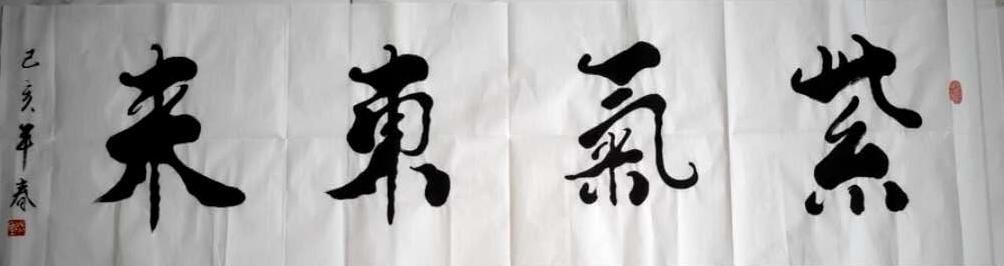 紫氣東来
己亥年春